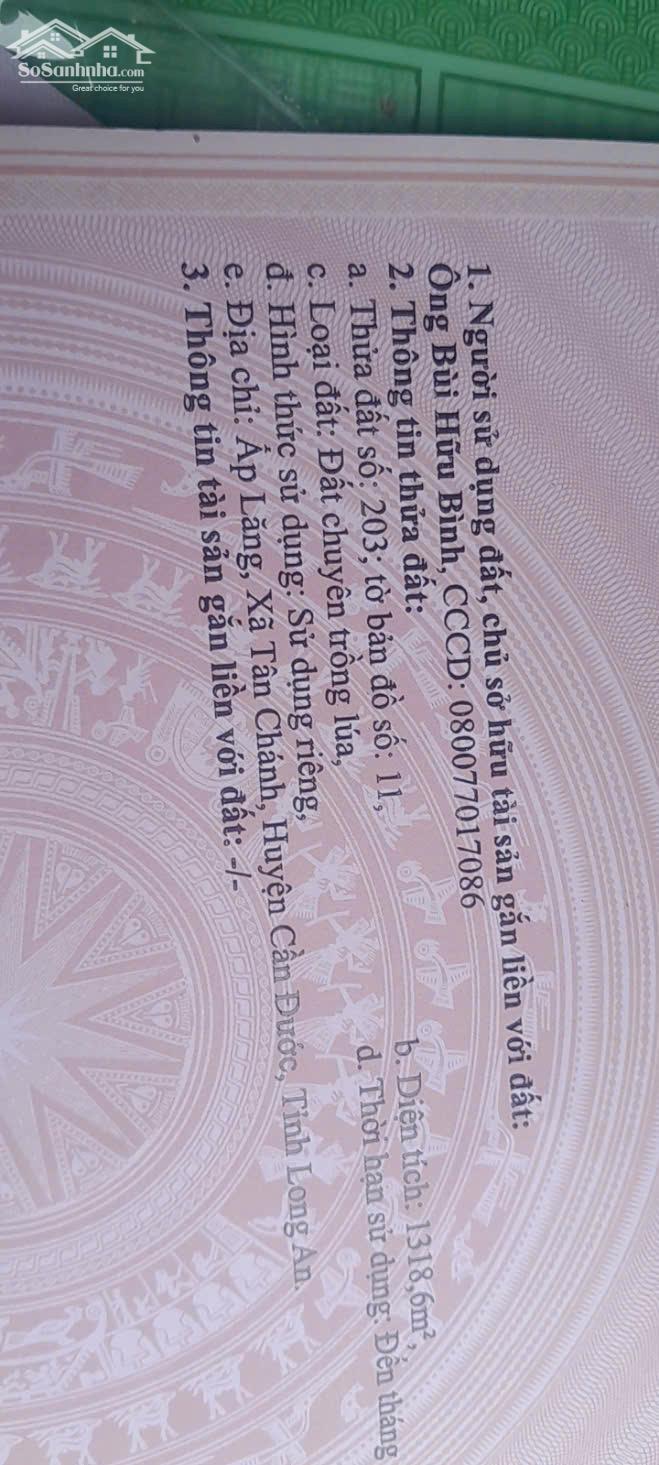 SoSanhnha.com
Great choice for you
1. Người sử dụng đất, chủ sở hữu tài sản gắn liền với đất:
Ông Bùi Hữu Bình, CCCD: 080077017086
2. Thông tin thửa đất:
a. Thửa đất số: 203; tờ bản đồ số: 11, b. Diện tích: 1318,6m²,
c. Loại đất: Đất chuyên trồng lúa, d. Thời hạn sử dụng: Đến tháng
đ. Hình thức sử dụng: Sử dụng riêng,
e. Địa chỉ: Ấp Lăng, Xã Tân Chánh, Huyện Cần Đước, Tỉnh Long An.
3. Thông tin tài sản gắn liền với đất: -/-